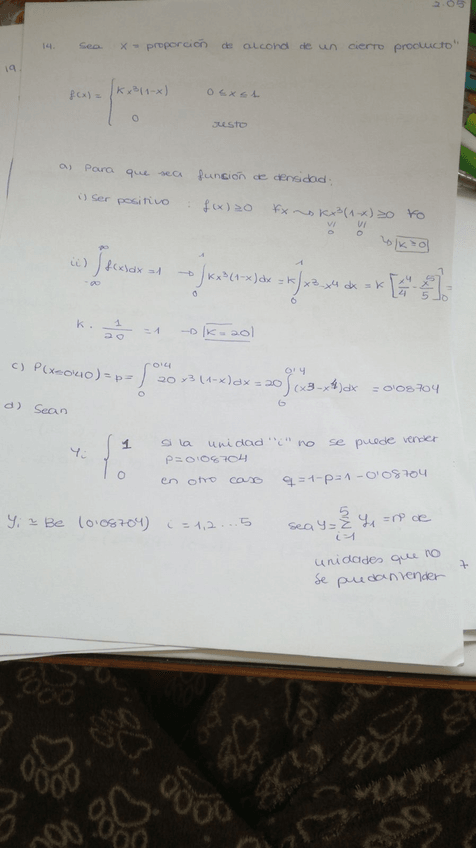 2.09
14. Sea X = proporción de alcohol de un cierto producto"
19.
f(x) = { Kx³(1-x) 0 ≤ x ≤ 1
0 resto
a) Para que sea función de densidad:
i) Ser positivo : f(x) ≥ 0 ∀x → Kx³(1-x) ≥ 0
→ K ≥ 0
ii) ∫_{-∞}^{∞} f(x)dx = 1 → ∫_0^1 Kx³(1-x)dx = K ∫_0^1 x³-x⁴ dx = K [x⁴/4 - x⁵/5]_0^1 =
K · 1/20 = 1 → K = 20
c) P(x≤0'40) = p = ∫_0^{0'4} 20 x³ (1-x)dx = 20 ∫_0^{0'4} (x³-x⁴)dx = 0'08704
d) Sean
Yi { 1 si la unidad "i" no se puede vender
p = 0'08704
0 en otro caso q = 1-p = 1 - 0'08704
Yi ≃ Be (0'08704) i = 1,2 ... 5 sea Y = ∑_{i=1}^{5} Yi = nº de
unidades que no
se puedan vender